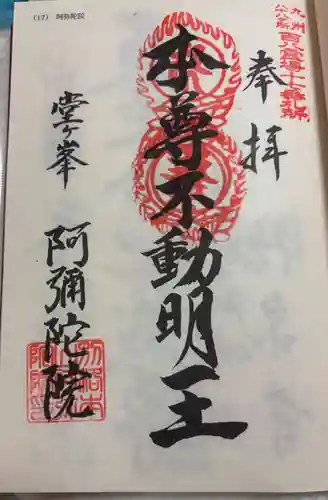 (17) 阿弥陀院
九州八十八ヶ所百八霊場十七番札所
奉拝
本尊不動明王
堂ヶ峯
阿彌陀院